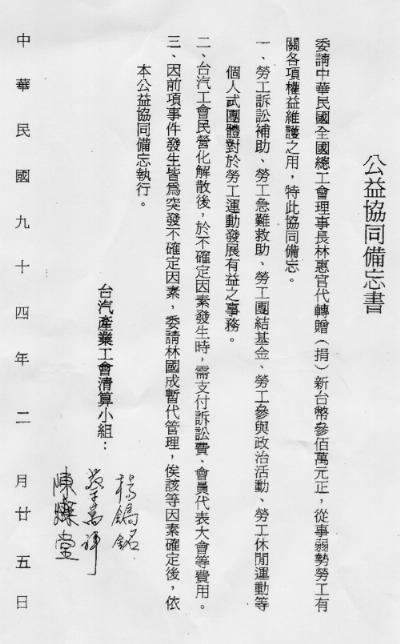 公益協同備忘書
委請中華民國全國總工會理事長林惠官代轉贈（捐）新台幣參佰萬元正，從事弱勢勞工有
關各項權益維護之用，特此協同備忘。
一、勞工訴訟補助、勞工急難救助、勞工團結基金、勞工參與政治活動、勞工休閒運動等
個人式團體對於勞工運動發展有益之事務。
二、台汽工會民營化解散後，於不確定因素發生時，需支付訴訟費．會員代表大會等費用。
三、因前項事件發生皆爲突發不確定因素，委請林國成暫代管理，俟該等因素確定後，依
本公益協同備忘執行。
台汽產業工會清算小組：
楊鎬銘
陳燦堂
中華民國九十四年二月廿五日